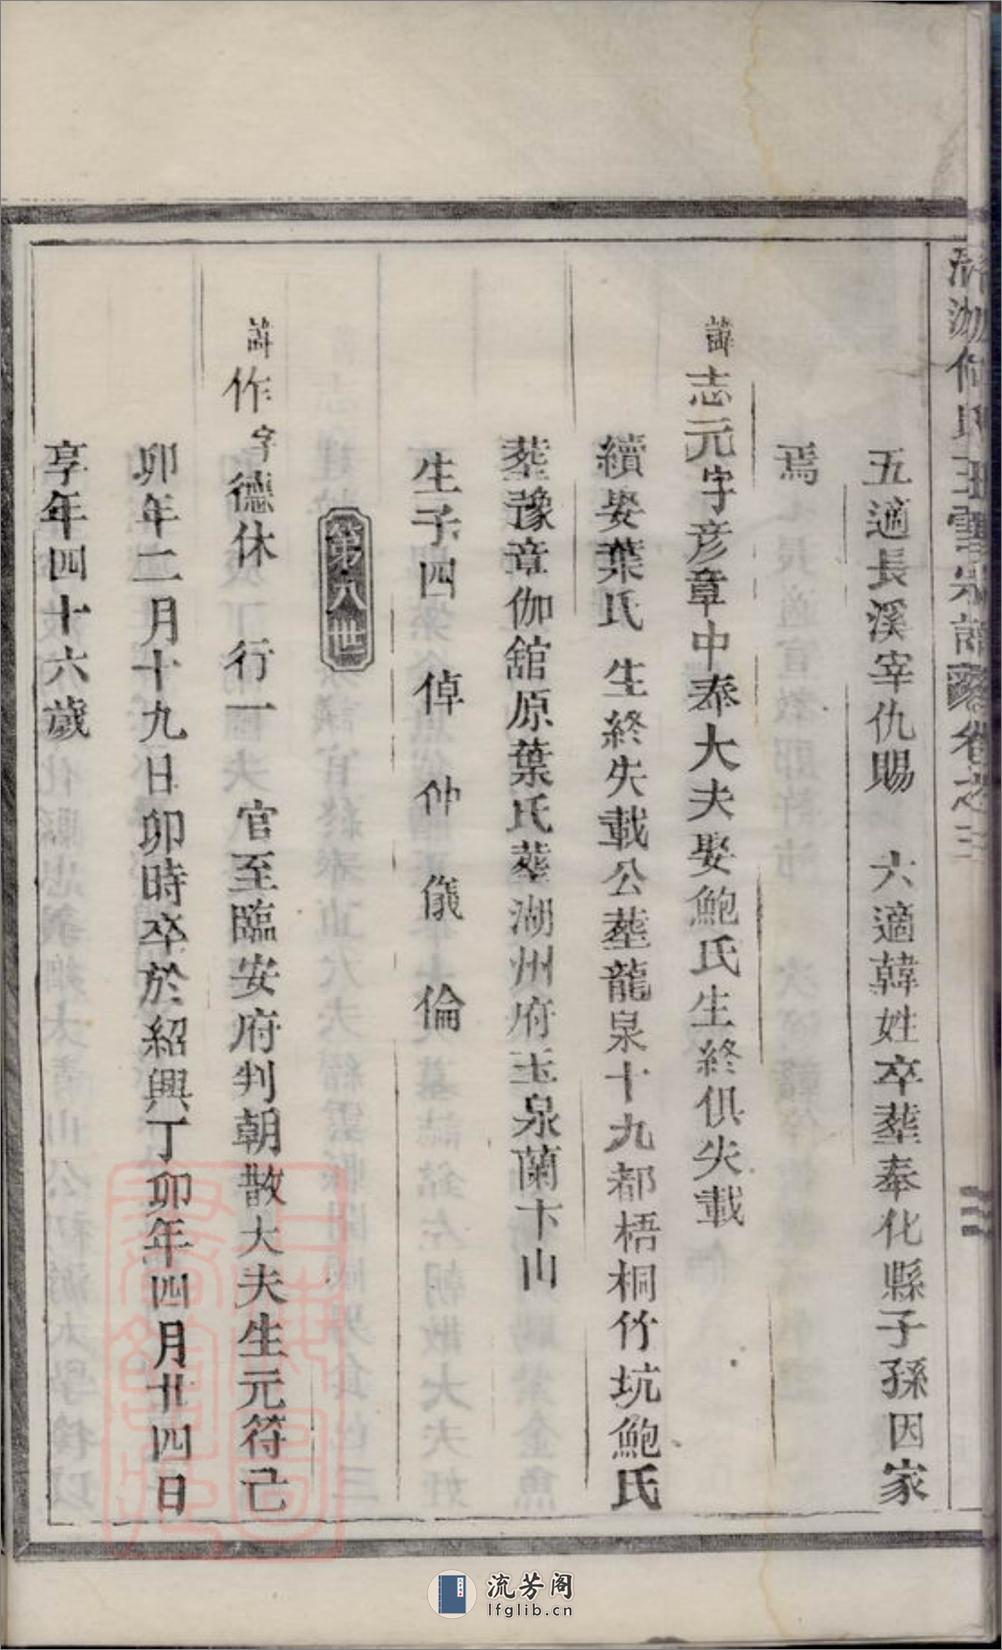 五適長溪宰仇賜　六適韓姓卒葬奉化縣子孫因家
焉
諱志元字彥章中奉大夫娶鮑氏生終俱失載
續娶葉氏　生終失載公葬龍泉十九都梧桐竹坑鮑氏
葬豫章伽舘原葉氏葬湖州府玉泉蘭卞山
生子四　倬　仲　儀　倫
第八世
諱作字德休　行一　官至臨安府判朝散大夫生元符己
卯年二月十九日卯時卒於紹興丁卯年四月廿四日
享年四十六歲
流芳阁
lfglib.cn